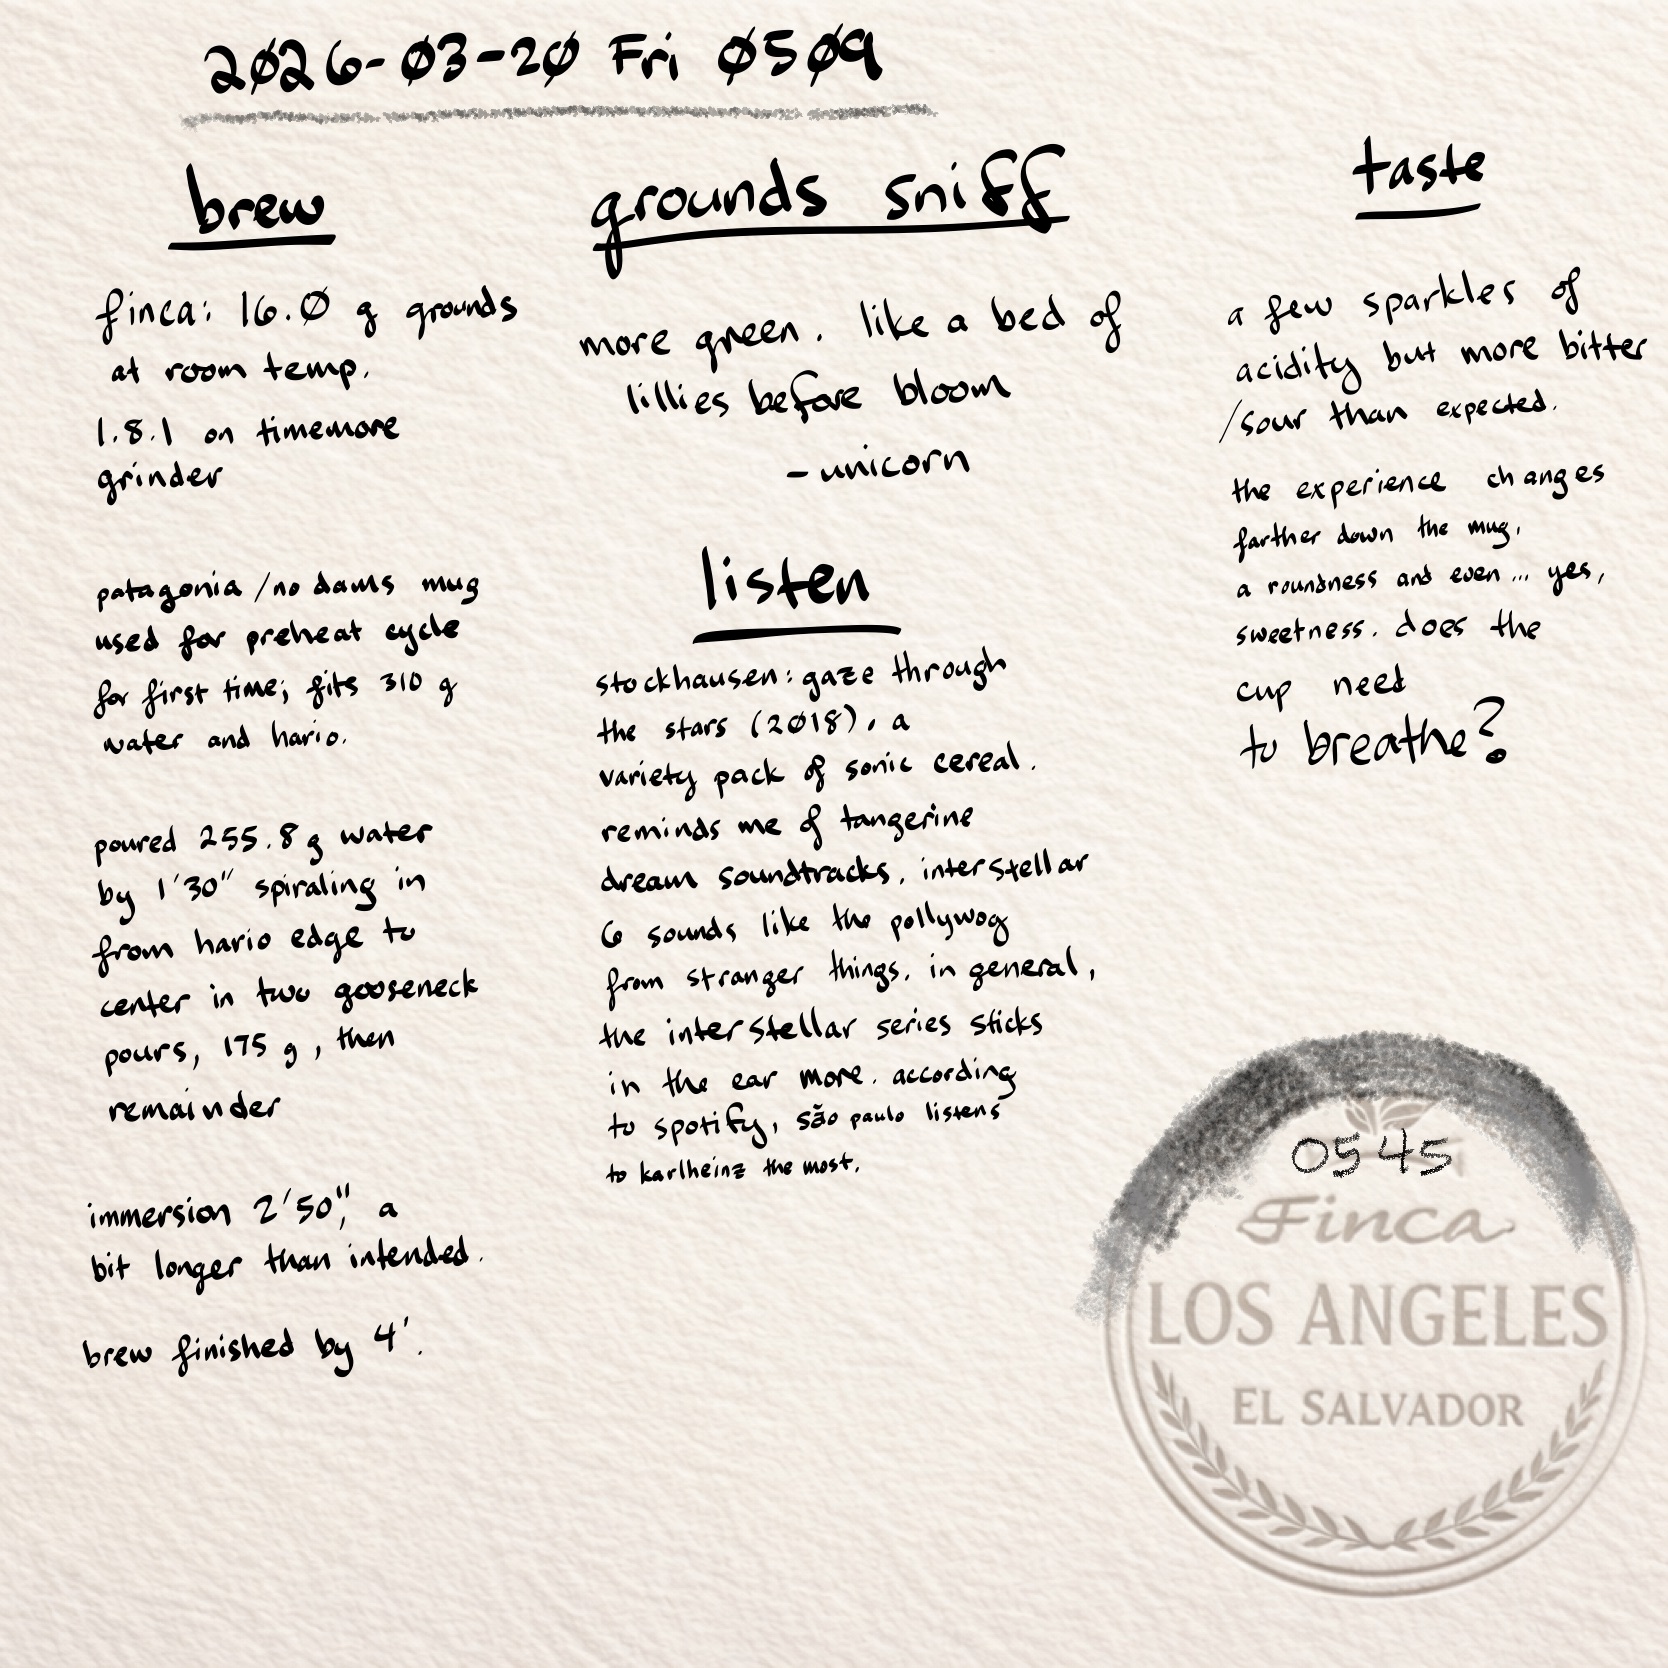 2026-03-20 Fri 0509
brew
finca: 16.0 g grounds
at room temp.
1.8.1 on timemore
grinder
patagonia /no dams mug
used for preheat cycle
for first time; fits 310 g
water and hario.
poured 255.8 g water
by 1'30" spiraling in
from hario edge to
center in two gooseneck
pours, 175 g, then
remainder
immersion 2'50", a
bit longer than intended.
brew finished by 4'.
grounds sniff
more green. like a bed of
lillies before bloom
- unicorn
listen
stockhausen: gaze through
the stars (2018). a
variety pack of sonic cereal.
reminds me of tangerine
dream soundtracks. interstellar
6 sounds like the pollywog
from stranger things. in general,
the interstellar series sticks
in the ear more. according
to spotify, são paulo listens
to karlheinz the most.
taste
a few sparkles of
acidity but more bitter
/sour than expected.
the experience changes
farther down the mug.
a roundness and even... yes,
sweetness. does the
cup need
to breathe?
0545
Finca
LOS ANGELES
EL SALVADOR